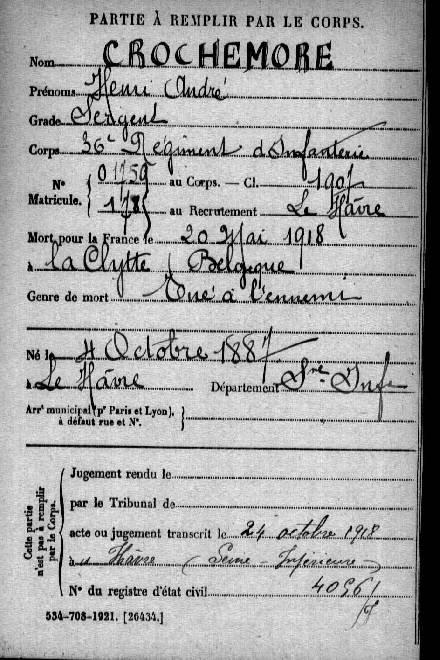 PARTIE À REMPLIR PAR LE CORPS.
Nom CROCHEMORE
Prénoms Henri André
Grade Sergent
Corps 36e Régiment d'Infanterie
N° 01759 au Corps. — Cl. 1907
Matricule. 178 au Recrutement Le Hâvre
Mort pour la France le 20 Mai 1918
à La Clytte (Belgique)
Genre de mort Tué à l'ennemi
Né le 4 Octobre 1887
à Le Hâvre Département Sne Infe
Arrt municipal (pr Paris et Lyon),
à défaut rue et N°.
Cette partie
n'est pas à remplir
par le Corps.
Jugement rendu le
par le Tribunal de
acte ou jugement transcrit le 24 octobre 1918
à Hâvre (Seine-Inférieure)
N° du registre d'état civil
534-708-1921. [26434.]